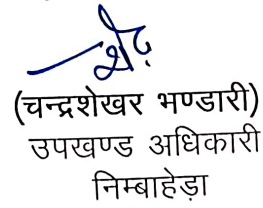 (चन्द्रशेखर भण्डारी)
उपखण्ड अधिकारी
निम्बाहेड़ा